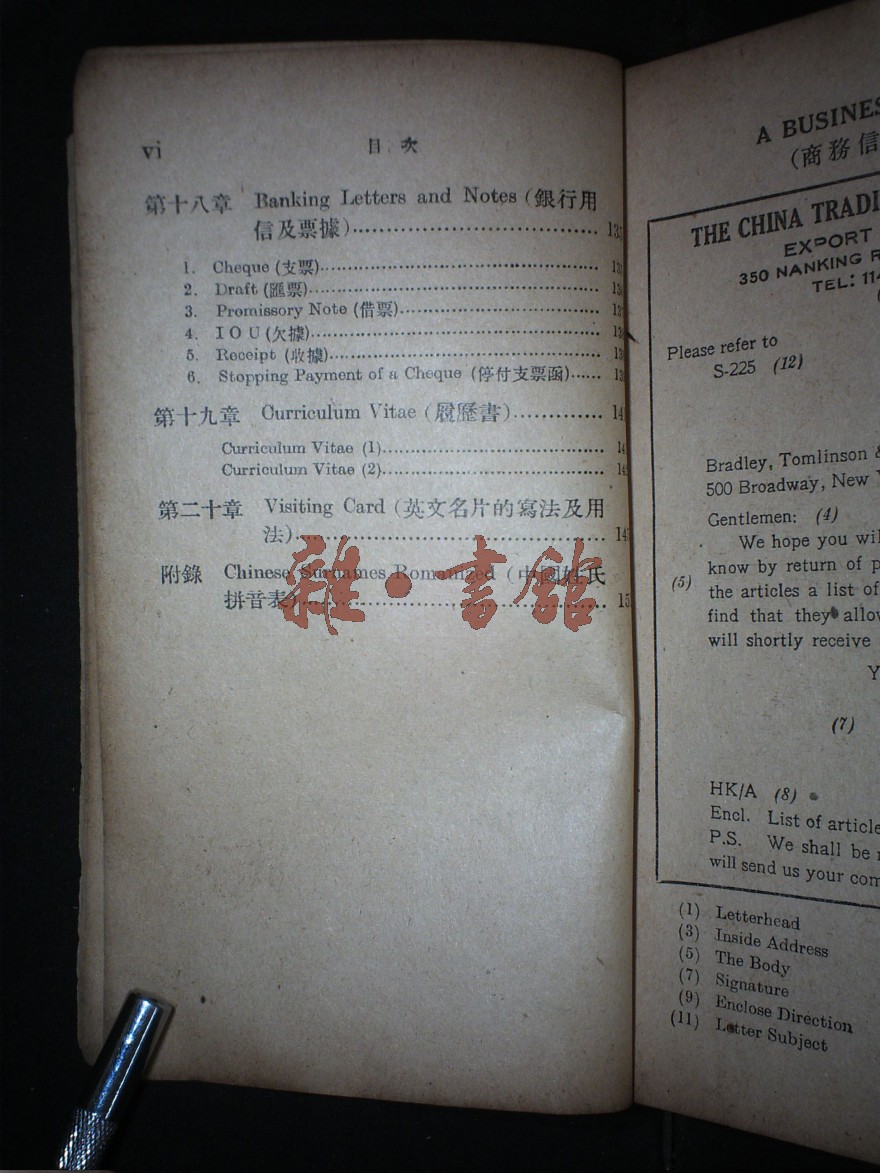 vi
目次
第十八章 Banking Letters and Notes (銀行用
信及票據)
1. Cheque (支票)
2. Draft (匯票)
3. Promissory Note (借票)
4. I O U (欠據)
5. Receipt (收據)
6. Stopping Payment of a Cheque (停付支票函)
第十九章 Curriculum Vitae (履歷書)
Curriculum Vitae (1)
Curriculum Vitae (2)
第二十章 Visiting Card (英文名片的寫法及用
法)
附錄 Chinese Surnames Romanized (中國姓氏
拼音表)
雜·書館
A BUSINES
(商務信
THE CHINA TRADI
EXPORT
350 NANKING R
TEL: 114
Please refer to
S-225 (12)
Bradley, Tomlinson &
500 Broadway, New Y
Gentlemen: (4)
We hope you wil
know by return of p
(5)
the articles a list of
find that they allow
will shortly receive
Y
(7)
HK/A (8)
Encl. List of article
P.S. We shall be
will send us your com
(1) Letterhead
(3) Inside Address
(5) The Body
(7) Signature
(9) Enclose Direction
(11) Letter Subject